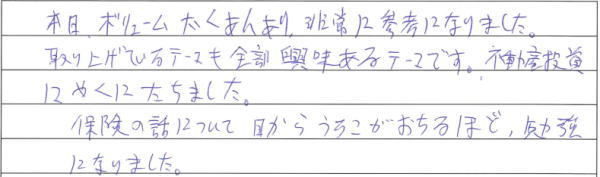 本日、ボリューム太くあんあり、非常に参考になりました。
取り上げているテーマも全部興味あるテーマです。不動産投資
にやくにたちました。
保険の話について目からうろこがおちるほど、勉強
になりました。